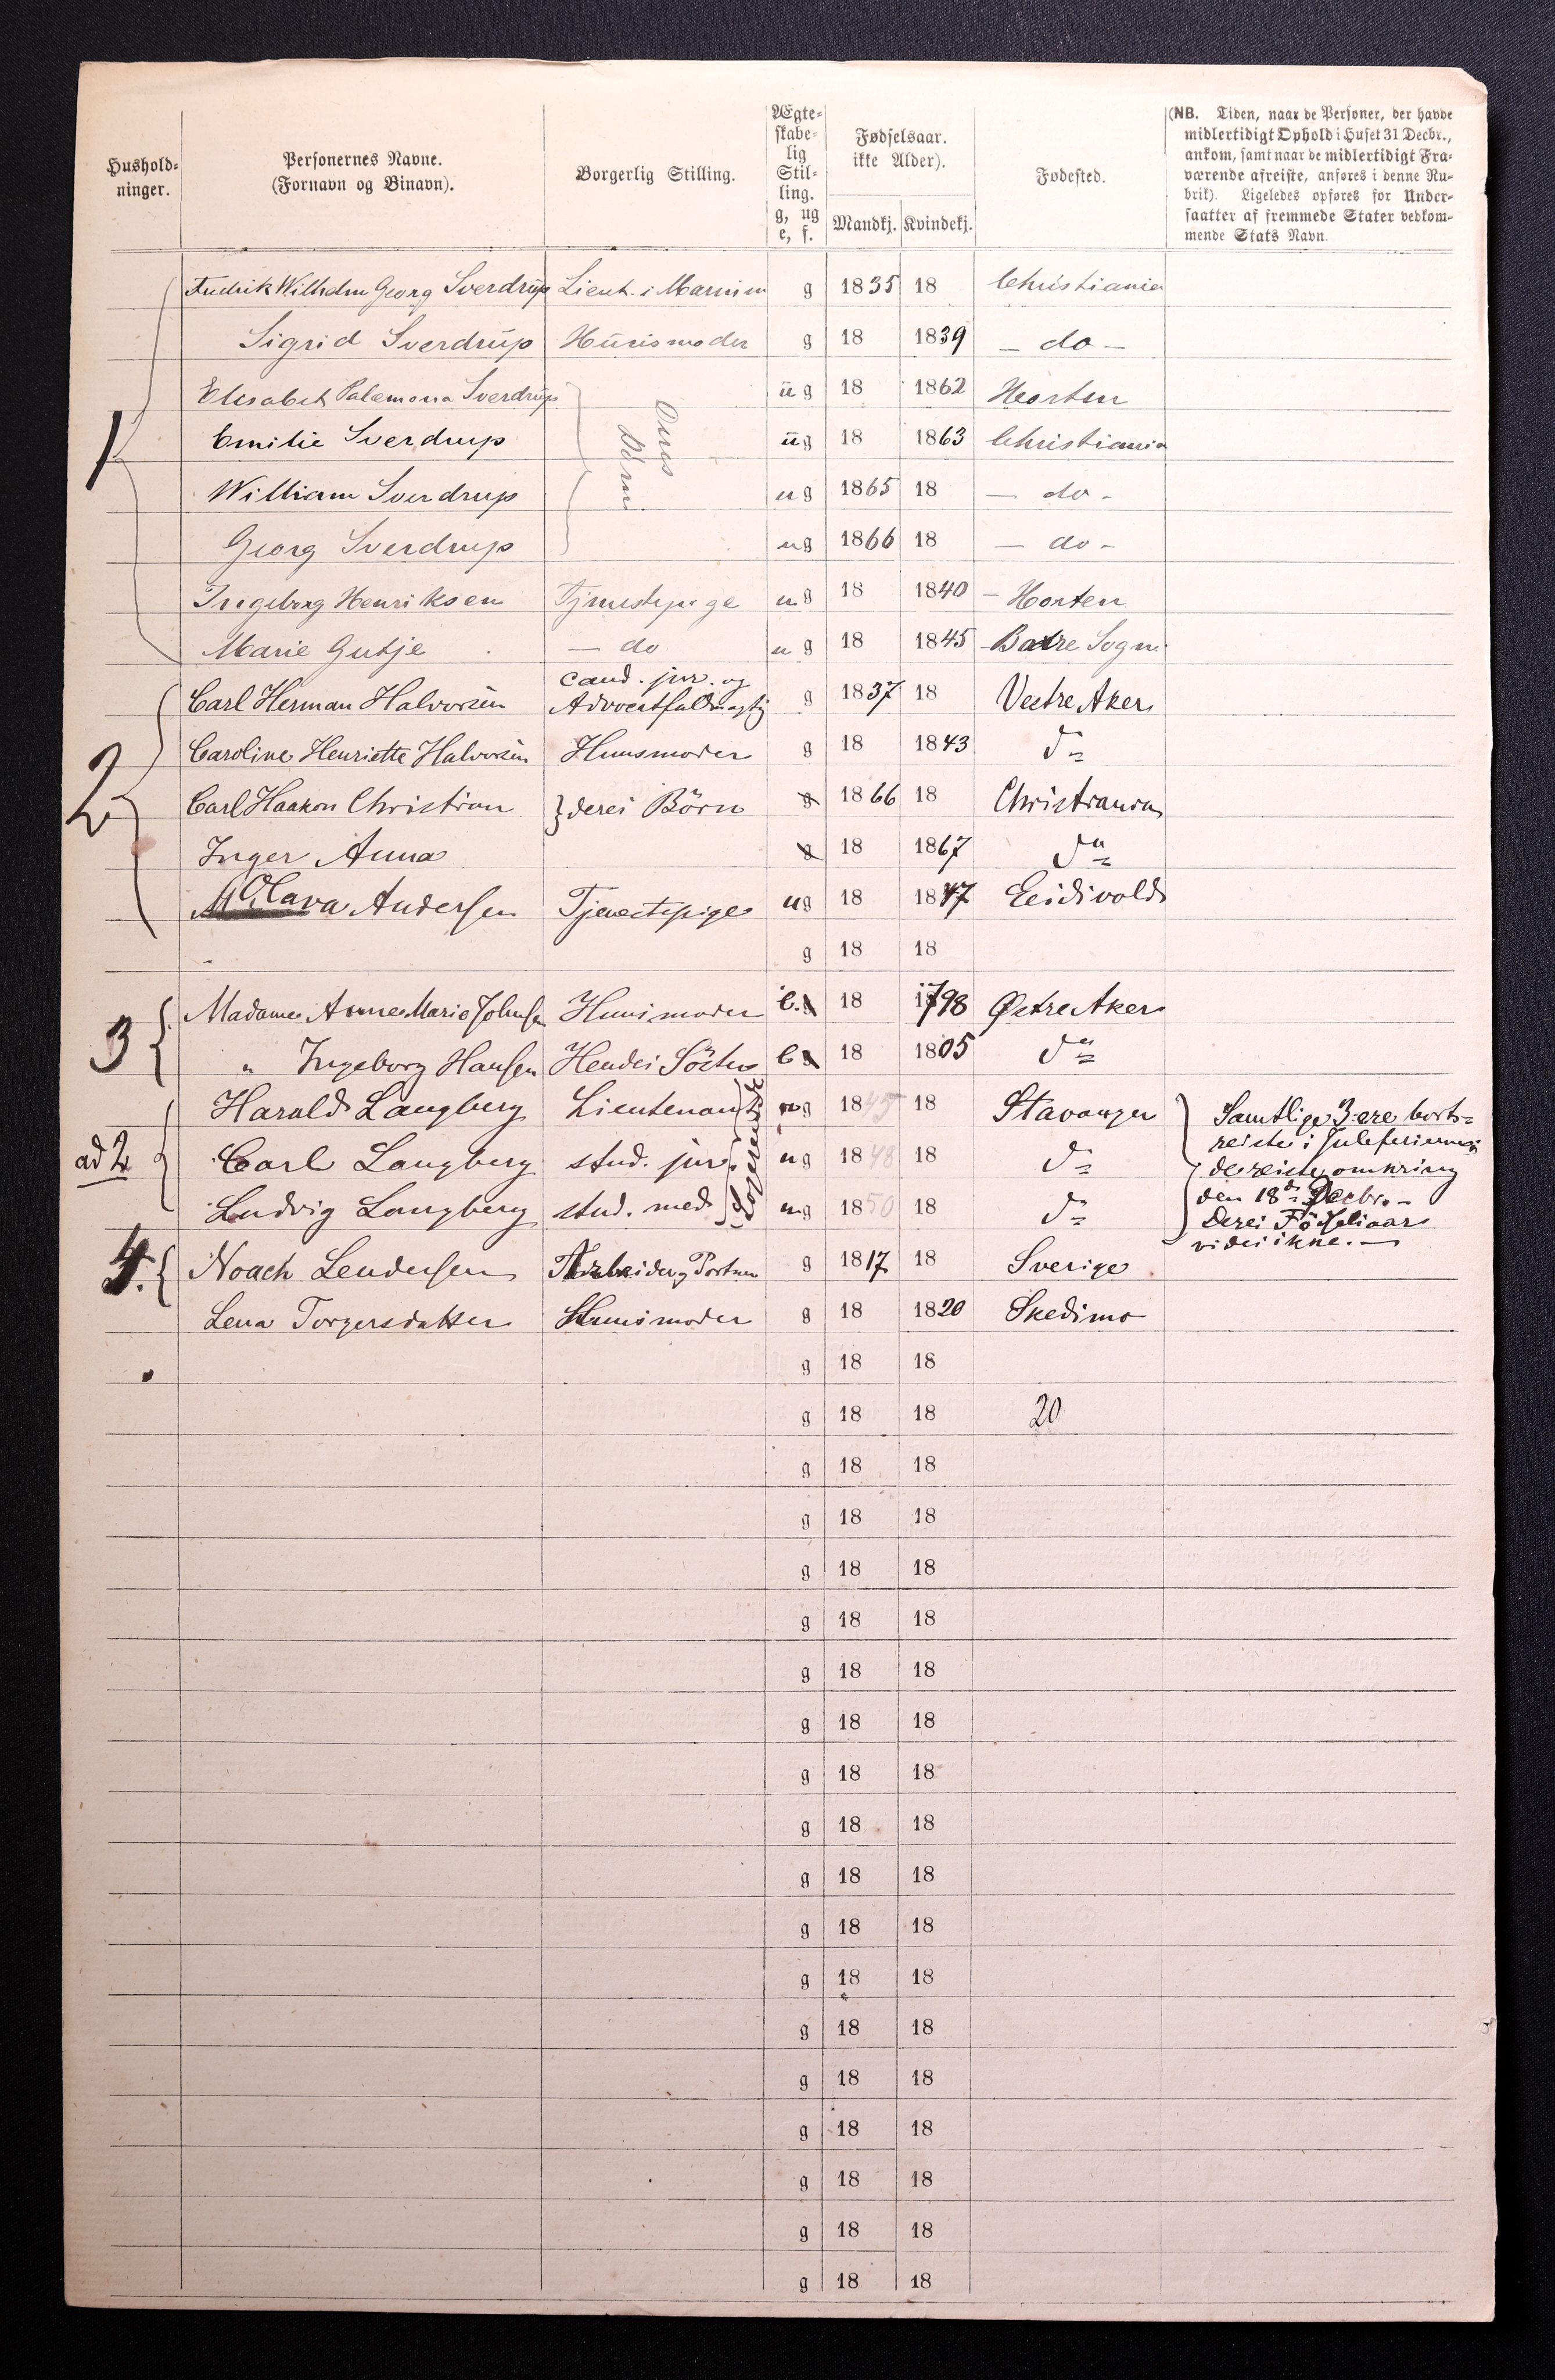 Hushold-
ninger.
Personernes Navne.
(Fornavn og Binavn).
Borgerlig Stilling.
Ægte-
skabe-
lig
Stil-
ling.
g, ug
e, f.
Fødselsaar.
ikke Alder).
Mandkj. Kvindekj.
Fødested.
(NB. Tiden, naar de Personer, der havde
midlertidigt Ophold i Huset 31 Decbr.,
ankom, samt naar de midlertidigt Fra-
værende afreiste, anføres i denne Ru-
brik). Ligeledes opføres for Under-
saatter af fremmede Stater vedkom-
mende Stats Navn.
1
Fredrik Wilhelm Georg Sverdrup Lieut. i Marinen g 1835 18 Christiania
Sigrid Sverdrup Husmoder g 18 1839 – do –
Elisabet Palæmona Sverdrup ug 18 1862 Horten
Emilie Sverdrup Deres Börn ug 18 1863 Christiania
William Sverdrup ug 1865 18 – do –
Georg Sverdrup ug 1866 18 – do –
Ingeborg Henriksen Tjenestepige ug 18 1840 – Horten
Marie Gutje – do ug 18 1845 Sogn
2
cand. jur. og
Carl Herman Halvorsen Advocatfuldmægtig g 1837 18 Vestre Aker
Caroline Henriette Halvorsen Huusmoder g 18 1843 do
Carl Haakon Christian } deres Börn g 1866 18 Christiania
Inger Anna g 18 1867 do
Olava Andersen Tjenestepige ug 18 1847 Eidsvold
g 18 18
3
Madame Anne Marie Johnsen Huusmoder e. 18 1798 Østre Aker
" Ingeborg Hansen Hendes Söster e 18 1805 do
ad 2
Harald Langberg Lieutenant ug 1845 18 Stavanger
Carl Langberg stud. jur. Logerende ug 1848 18 do
Ludvig Langberg stud. med ug 1850 18 do
Samtlige 3 ere borts-
reiste i Juleferierne
de reiste omkring
den 18de Decbr. –
Deres Födselsaar
vides ikke. –
4.
Noach Lendersen Arbeider, Portner g 1817 18 Sverige
Lena Torgersdatter Huusmoder g 18 1820 Skedsmo
g 18 18
g 18 18 20
g 18 18
g 18 18
g 18 18
g 18 18
g 18 18
g 18 18
g 18 18
g 18 18
g 18 18
g 18 18
g 18 18
g 18 18
g 18 18
g 18 18
g 18 18
g 18 18
g 18 18